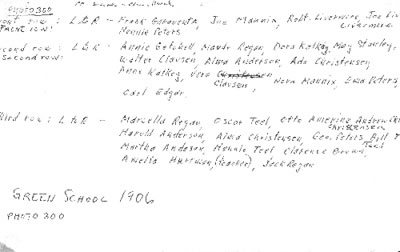 PHOTO 300
FRONT ROW: L & R - Frank Bonaventa, Joe Mannix, Robt. Livermore, Joe Liv
Livermore
Minnie Peters
Second row: L & R - Annie Getchell, Maude Regan, Dora Katkey, May Stanley,
Walter Clausen, Alma Anderson, Ada Christensen,
Anna Katkey, Vera Clausen, Nora Mannix, Emma Peters,
Carl Edgar.
Third row: L to R - Marcella Regan, Oscar Teel, Otto Amerine, Andrew Christensen
Harold Anderson, Alma Christensen, Geo. Peters, Bill T
Martha Anderson, Mannie Teel, Clarence Brown,
Amelia (teacher), Jack Regan
GREEN SCHOOL 1906
PHOTO 300